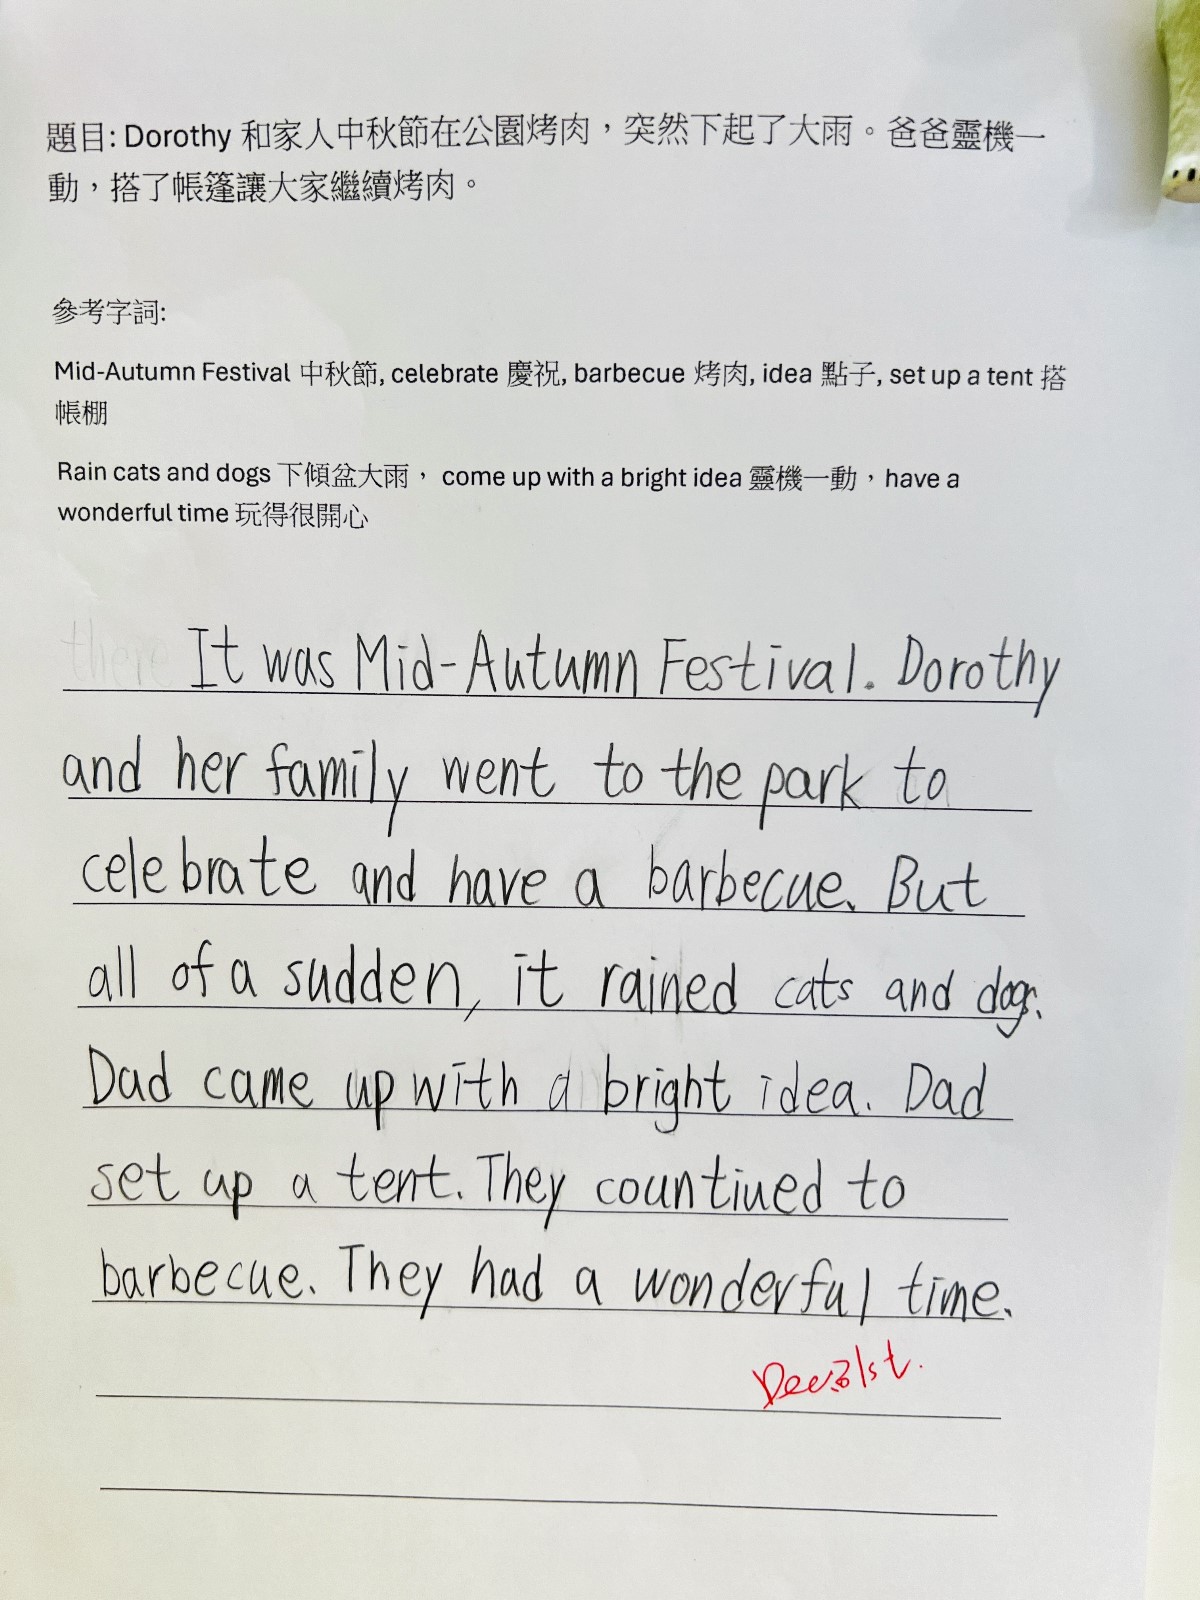 題目: Dorothy 和家人中秋節在公園烤肉，突然下起了大雨。爸爸靈機一
動，搭了帳篷讓大家繼續烤肉。
參考字詞:
Mid-Autumn Festival 中秋節, celebrate 慶祝, barbecue 烤肉, idea 點子, set up a tent 搭
帳棚
Rain cats and dogs 下傾盆大雨， come up with a bright idea 靈機一動，have a
wonderful time 玩得很開心
there It was Mid-Autumn Festival. Dorothy
and her family went to the park to
celebrate and have a barbecue. But
all of a sudden, it rained cats and dogs.
Dad came up with a bright idea. Dad
set up a tent. They countiued to
barbecue. They had a wonderful time.
Dec 31st.